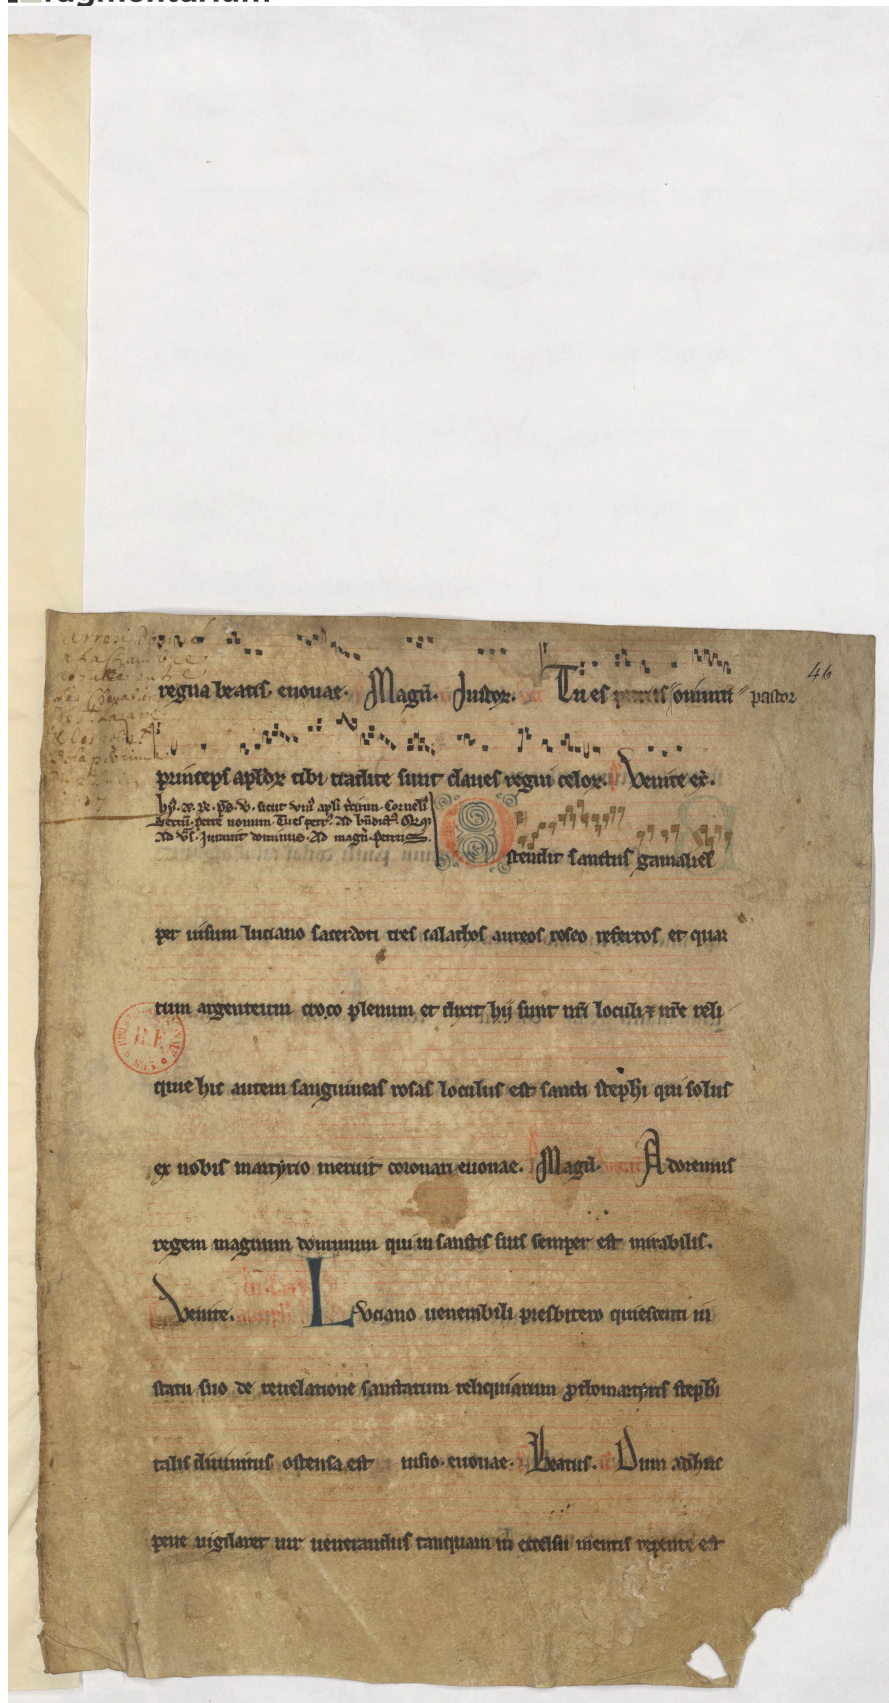 fragmentarium
46
regna beatis. euouae. Magn̄. Iustor. Tu es petrus omnium pastor
princeps apl̄oꝝ tibi tradite sunt claues regni celor. Venite ex̄.
tercium. Corneli
nomen. Tu es petr᷒. Ad
Ad v̄s. Iurauit dominus. Ad magn̄. Petrus
Ostendit sanctus gamaliel
per uisum luciano sacerdoti tres calathos aureos roseo refertos et quar
tum argenteum croco plenum et dixit hij sunt nr̄i loculi ⁊ nr̄e reli
quie hic autem sanguineas rosas loculus est sancti steph̄i qui solus
ex nobis martyrio meruit coronari euouae. Magn̄. Adoremus
regem magnum dominum qui in sanctis suis semper est mirabilis.
Venite. Luciano uenerabili presbitero quiescenti in
statu suo de reuelatione sanctarum reliquiarum ꝓthomartyris steph̄i
talis diuinitus ostensa est uisio. euouae. Beatus. Dum adhuc
pene uigilaret uir uenerandus tanquam in excessu mentis repente est